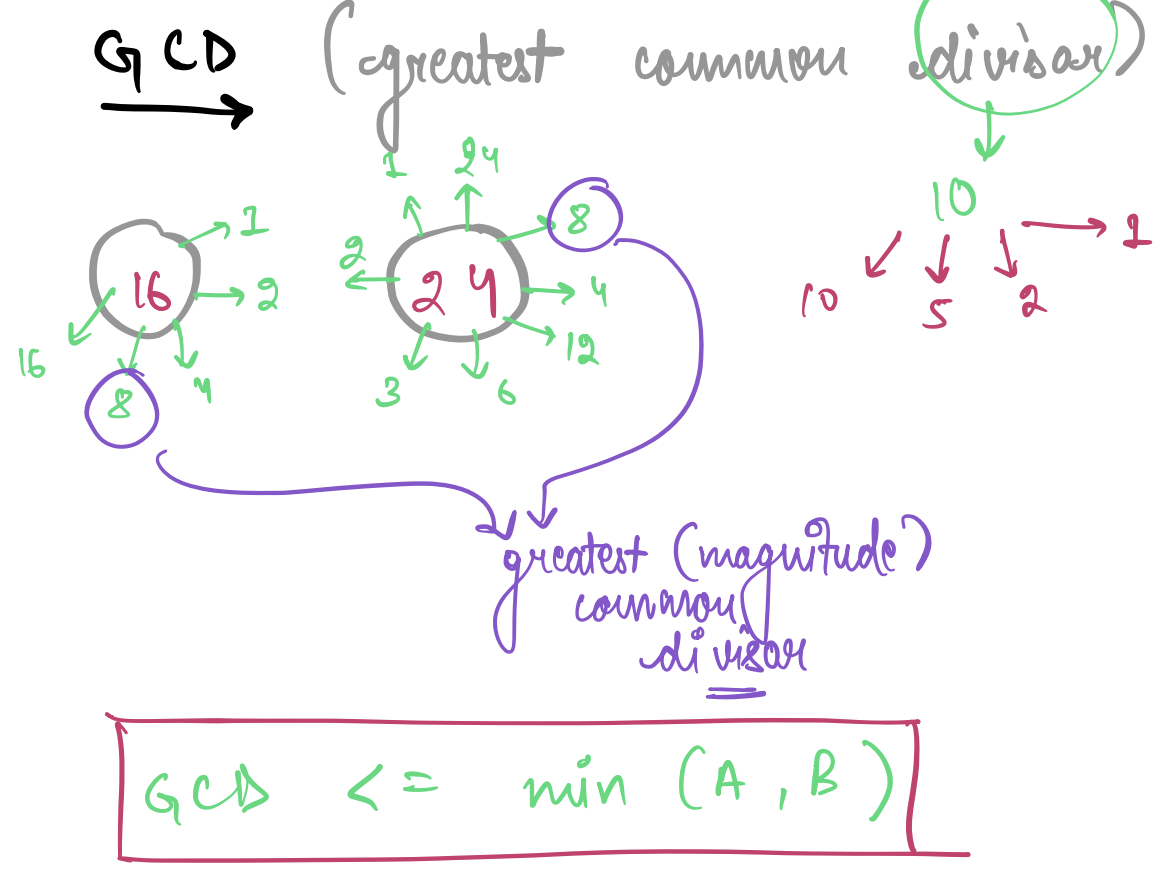 GCD (greatest common divisor)
1 24
10
1 8
2
16 24
1
2 4
10 5 2
12
16
3 6
4
8
greatest (magnitude)
common
divisor
GCD <= min (A, B)